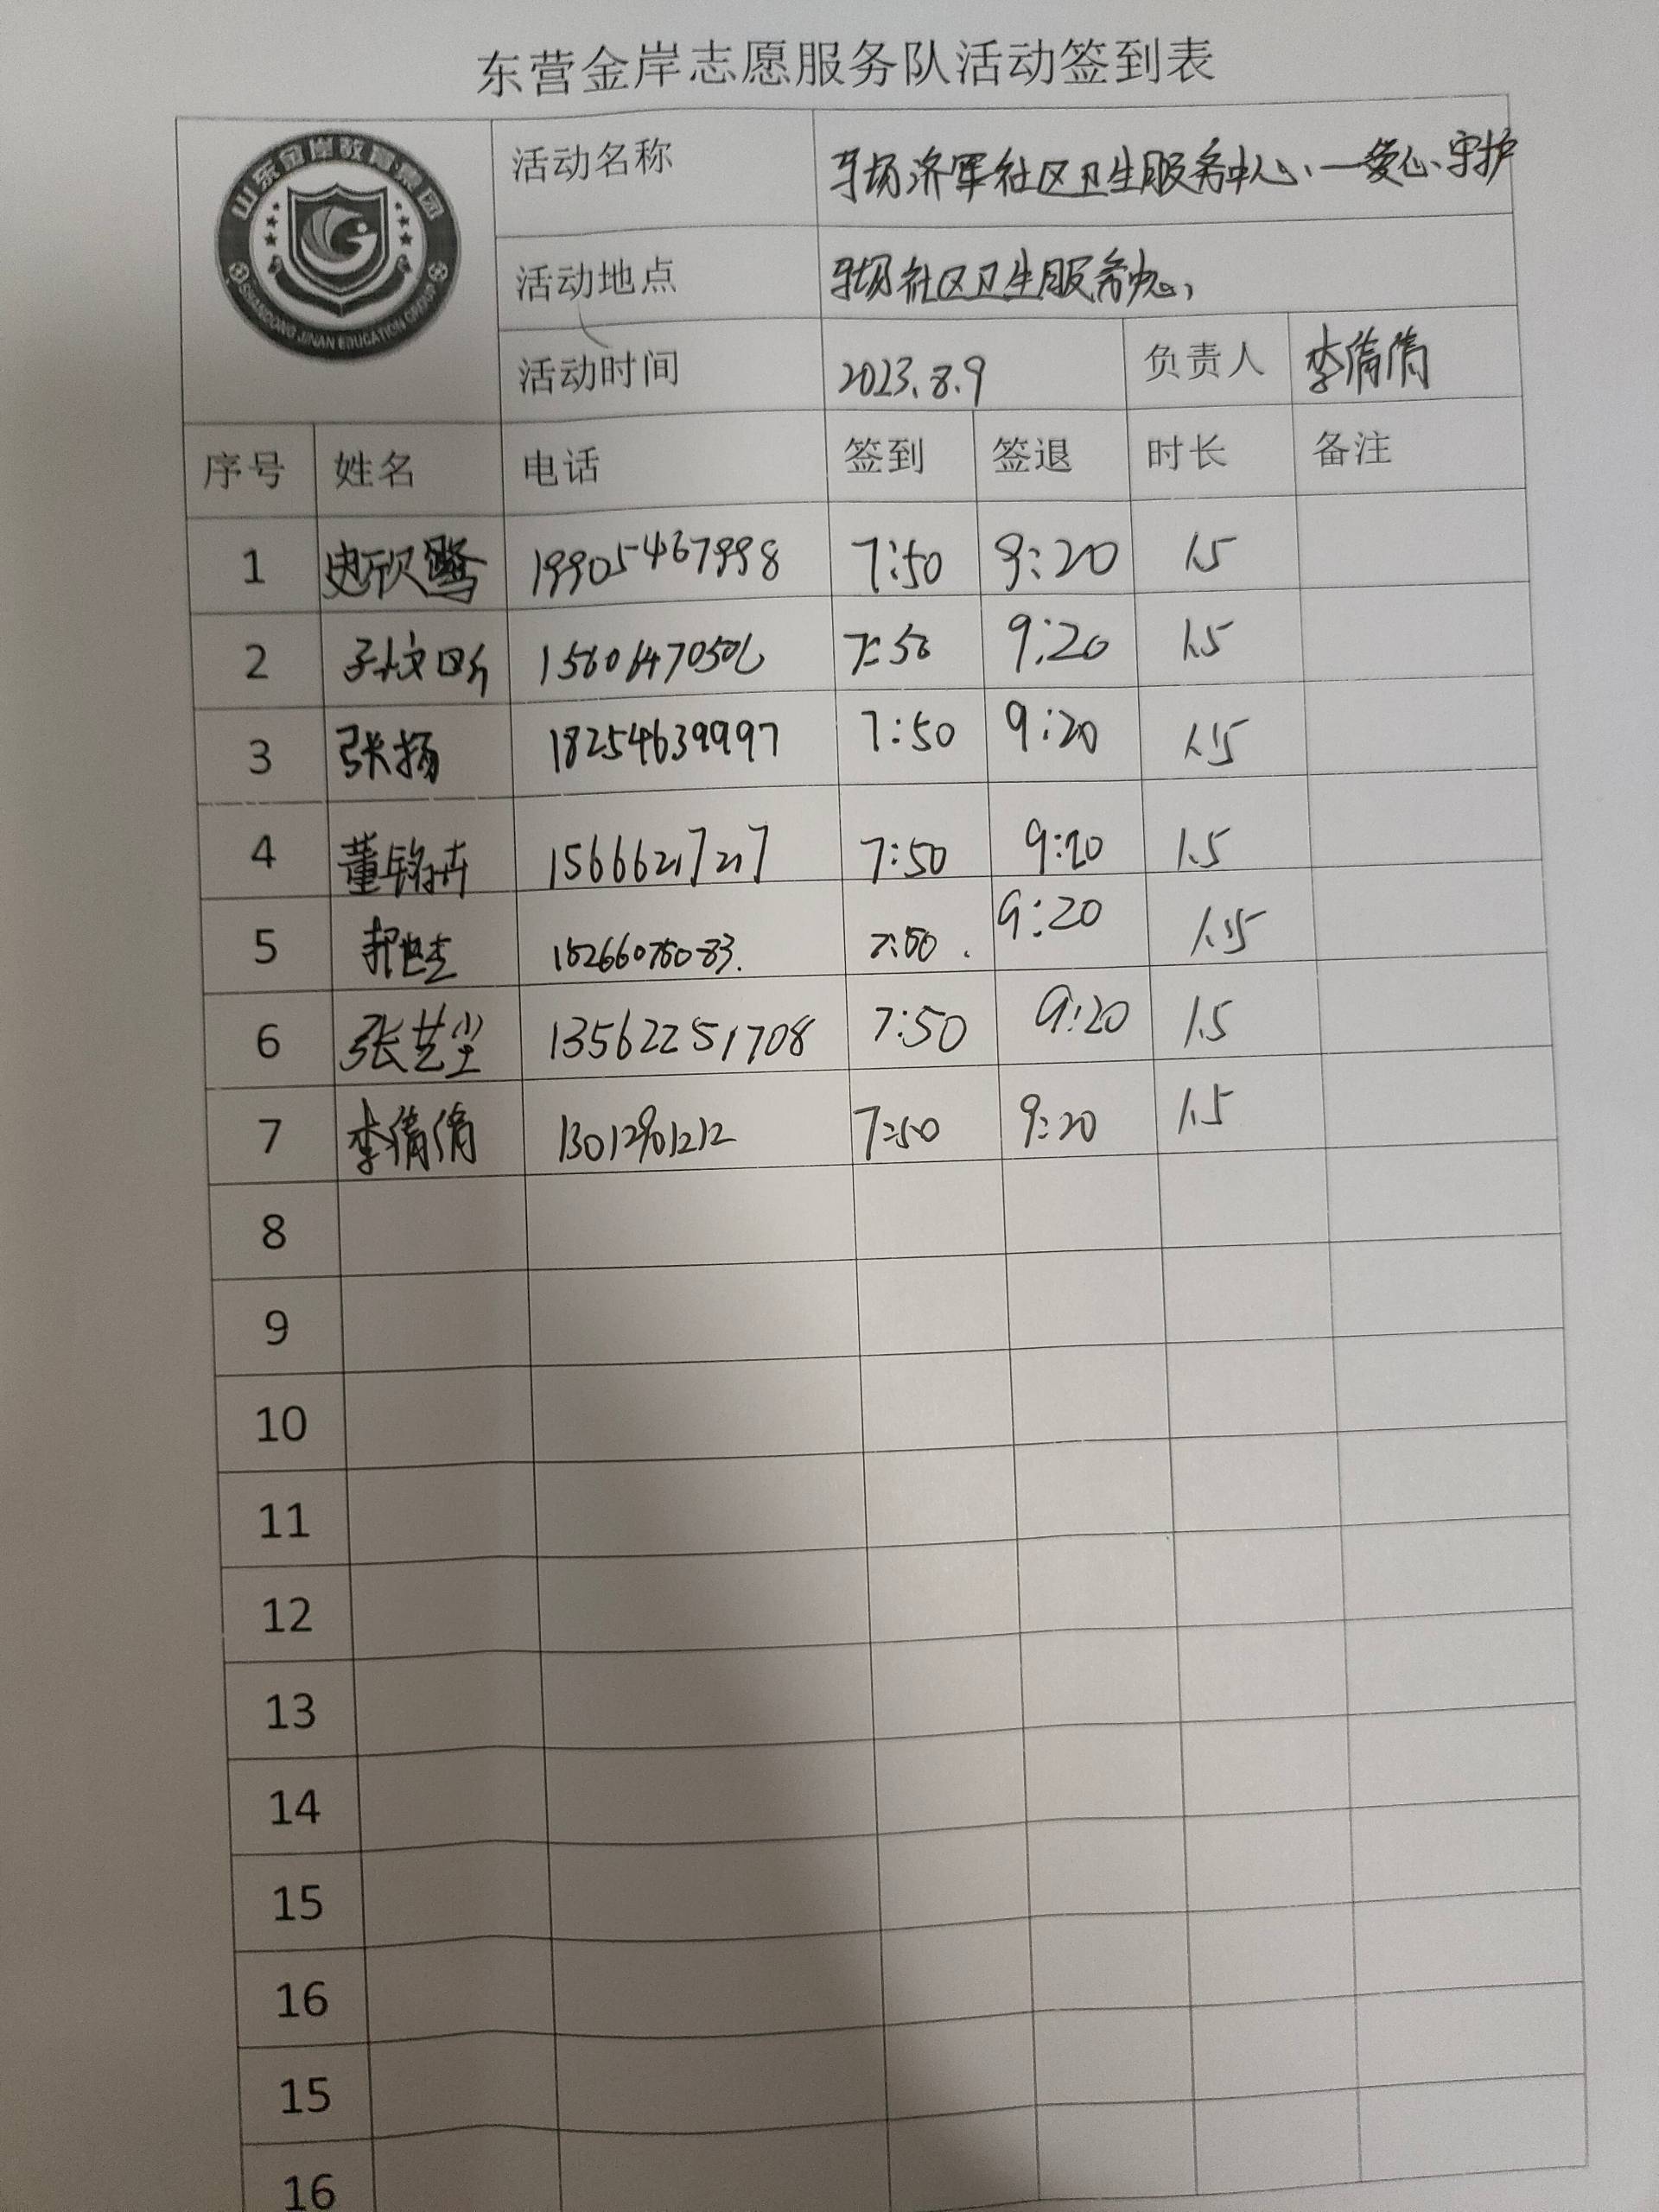 东营金岸志愿服务队活动签到表
山东金岸教育集团
SHANDONG JINAN EDUCATION GROUP
活动名称 孤岛济军社区卫生服务中心、一爱心守护
活动地点 社区卫生服务中心
活动时间 2023.8.9 负责人 李倩倩
序号 姓名 电话 签到 签退 时长 备注
1 史欣鹭 19905467998 7:50 9:20 1.5
2 孙文昕 7:50 9:20 1.5
3 张扬 18254639997 7:50 9:20 1.5
4 董铭卉 15666217217 7:50 9:20 1.5
5 7:50 9:20 1.5
6 张芝尘 13562251708 7:50 9:20 1.5
7 李倩倩 13012901212 7:50 9:20 1.5
8
9
10
11
12
13
14
15
16
15
16